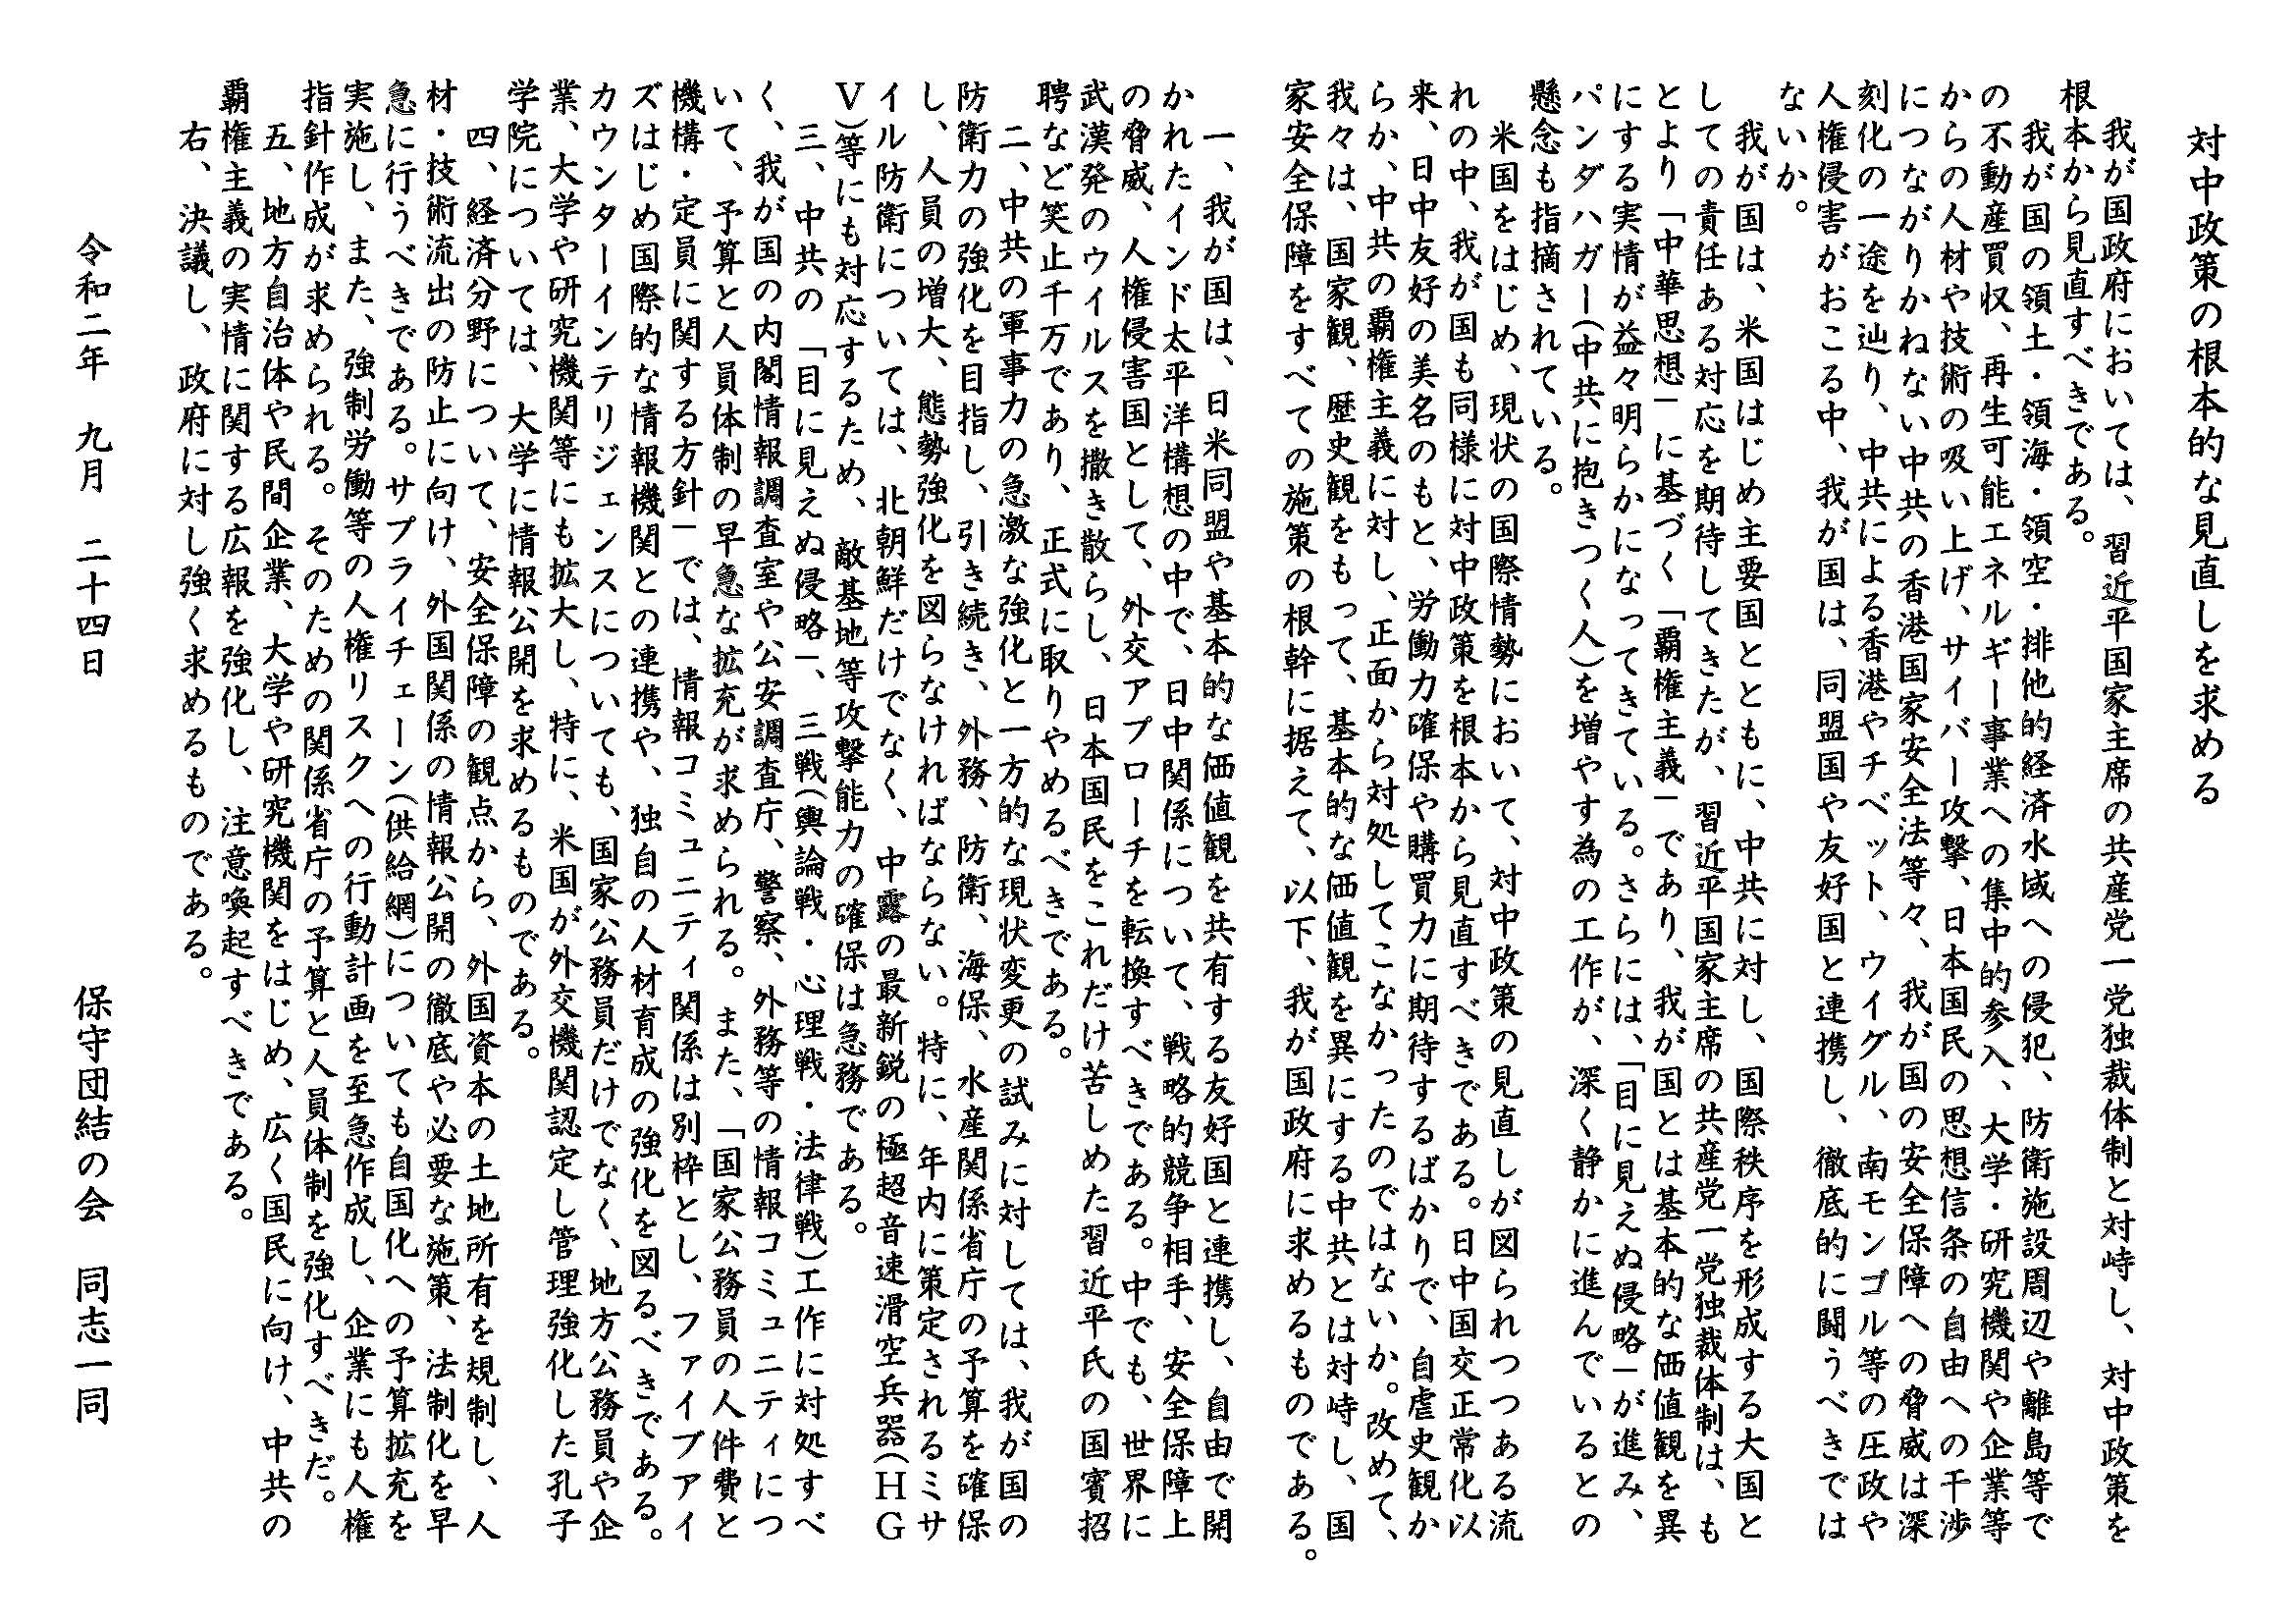 対中政策の根本的な見直しを求める
我が国政府においては、習近平国家主席の共産党一党独裁体制と対峙し、対中政策を
根本から見直すべきである。
我が国の領土・領海・領空・排他的経済水域への侵犯、防衛施設周辺や離島等で
の不動産買収、再生可能エネルギー事業への集中的参入、大学・研究機関や企業等
からの人材や技術の吸い上げ、サイバー攻撃、日本国民の思想信条の自由への干渉
につながりかねない中共の香港国家安全法等々、我が国の安全保障への脅威は深
刻化の一途を辿り、中共による香港やチベット、ウイグル、南モンゴル等の圧政や
人権侵害がおこる中、我が国は、同盟国や友好国と連携し、徹底的に闘うべきでは
ないか。
我が国は、米国はじめ主要国とともに、中共に対し、国際秩序を形成する大国と
しての責任ある対応を期待してきたが、習近平国家主席の共産党一党独裁体制は、も
とより「中華思想」に基づく「覇権主義」であり、我が国とは基本的な価値観を異
にする実情が益々明らかになってきている。さらには、「目に見えぬ侵略」が進み、
パンダハガー(中共に抱きつく人)を増やす為の工作が、深く静かに進んでいるとの
懸念も指摘されている。
米国をはじめ、現状の国際情勢において、対中政策の見直しが図られつつある流
れの中、我が国も同様に対中政策を根本から見直すべきである。日中国交正常化以
来、日中友好の美名のもと、労働力確保や購買力に期待するばかりで、自虐史観か
らか、中共の覇権主義に対し、正面から対処してこなかったのではないか。改めて、
我々は、国家観、歴史観をもって、基本的な価値観を異にする中共とは対峙し、国
家安全保障をすべての施策の根幹に据えて、以下、我が国政府に求めるものである。
一、我が国は、日米同盟や基本的な価値観を共有する友好国と連携し、自由で開
かれたインド太平洋構想の中で、日中関係について、戦略的競争相手、安全保障上
の脅威、人権侵害国として、外交アプローチを転換すべきである。中でも、世界に
武漢発のウイルスを撒き散らし、日本国民をこれだけ苦しめた習近平氏の国賓招
聘など笑止千万であり、正式に取りやめるべきである。
二、中共の軍事力の急激な強化と一方的な現状変更の試みに対しては、我が国の
防衛力の強化を目指し、引き続き、外務、防衛、海保、水産関係省庁の予算を確保
し、人員の増大、態勢強化を図らなければならない。特に、年内に策定されるミサ
イル防衛については、北朝鮮だけでなく、中露の最新鋭の極超音速滑空兵器(HG
V)等にも対応するため、敵基地等攻撃能力の確保は急務である。
三、中共の「目に見えぬ侵略」、三戦(輿論戦・心理戦・法律戦)工作に対処すべ
く、我が国の内閣情報調査室や公安調査庁、警察、外務等の情報コミュニティにつ
いて、予算と人員体制の早急な拡充が求められる。また、「国家公務員の人件費と
機構・定員に関する方針」では、情報コミュニティ関係は別枠とし、ファイブアイ
ズはじめ国際的な情報機関との連携や、独自の人材育成の強化を図るべきである。
カウンターインテリジェンスについても、国家公務員だけでなく、地方公務員や企
業、大学や研究機関等にも拡大し、特に、米国が外交機関認定し管理強化した孔子
学院については、大学に情報公開を求めるものである。
四、経済分野について、安全保障の観点から、外国資本の土地所有を規制し、人
材・技術流出の防止に向け、外国関係の情報公開の徹底や必要な施策、法制化を早
急に行うべきである。サプライチェーン(供給網)についても自国化への予算拡充を
実施し、また、強制労働等の人権リスクへの行動計画を至急作成し、企業にも人権
指針作成が求められる。そのための関係省庁の予算と人員体制を強化すべきだ。
五、地方自治体や民間企業、大学や研究機関をはじめ、広く国民に向け、中共の
覇権主義の実情に関する広報を強化し、注意喚起すべきである。
右、決議し、政府に対し強く求めるものである。
令和二年 九月 二十四日 保守団結の会 同志一同